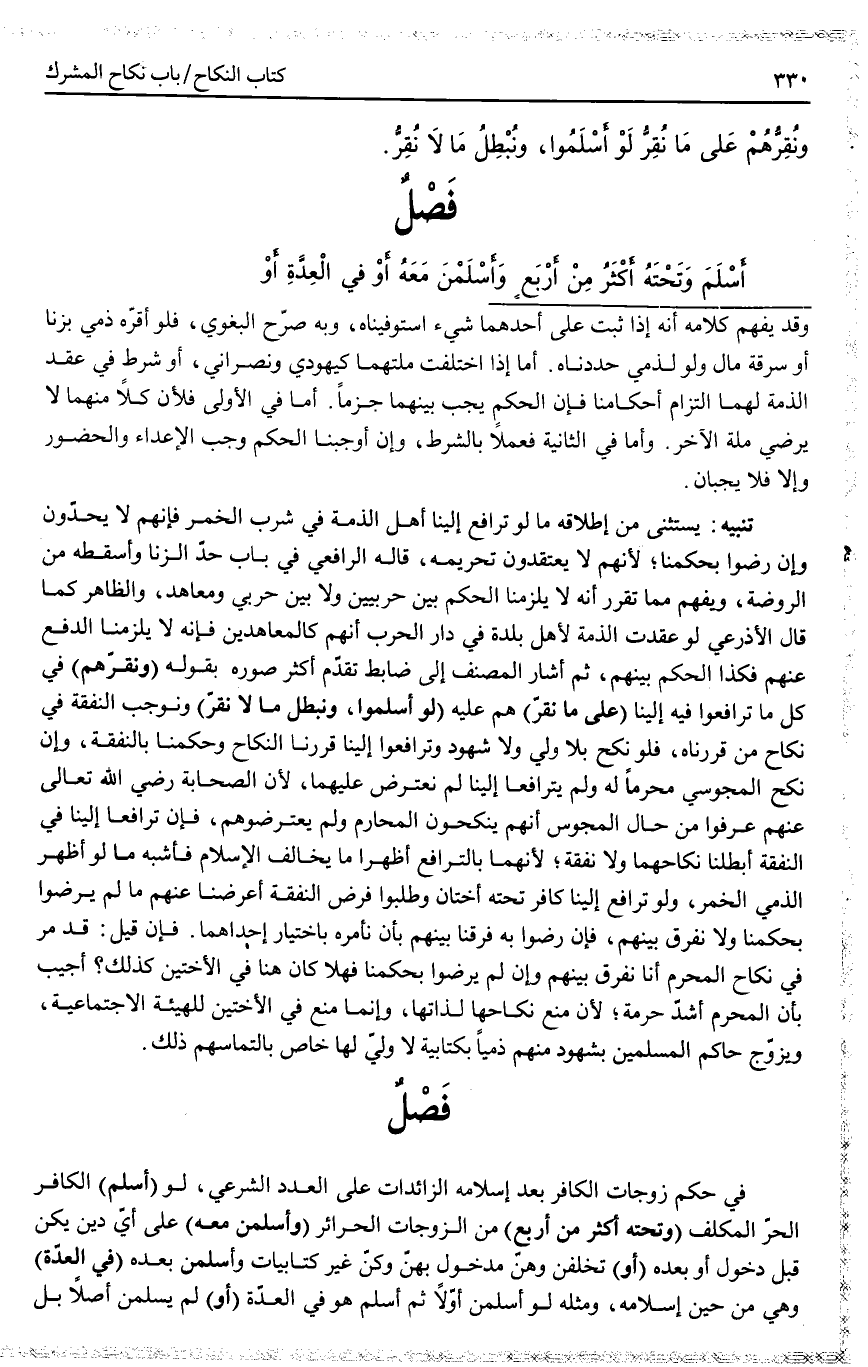 ٣٣٠ كتاب النكاح/ باب نكاح المشرك
ونُقِرُّهُمْ عَلى مَا نُقِرُّ لَوْ أَسْلَمُوا، ونُبْطِلُ مَا لَا نُقِرُّ.
فَصْلٌ
أَسْلَمَ وَتَحْتَهُ أَكْثَرُ مِنْ أَرْبَعٍ وَأَسْلَمْنَ مَعَهُ أَوْ في الْعِدَّةِ أَوْ
وقد يفهم كلامه أنه إذا ثبت على أحدهما شيء استوفيناه، وبه صرّح البغوي، فلو أقرّه ذمي بزنا
أو سرقة مال ولو لذمي حددناه. أما إذا اختلفت ملتهما كيهودي ونصراني، أو شرط في عقد
الذمة لهما التزام أحكامنا فإن الحكم يجب بينهما جزماً. أما في الأولى فلأن كلاً منهما لا
يرضي ملة الآخر. وأما في الثانية فعملاً بالشرط، وإن أوجبنا الحكم وجب الإعداء والحضور
وإلا فلا يجبان.
تنبيه: يستثنى من إطلاقه ما لو ترافع إلينا أهل الذمة في شرب الخمر فإنهم لا يحدّون
وإن رضوا بحكمنا؛ لأنهم لا يعتقدون تحريمه، قاله الرافعي في باب حدّ الزنا وأسقطه من
الروضة، ويفهم مما تقرر أنه لا يلزمنا الحكم بين حربيين ولا بين حربي ومعاهد، والظاهر كما
قال الأذرعي لو عقدت الذمة لأهل بلدة في دار الحرب أنهم كالمعاهدين فإنه لا يلزمنا الدفع
عنهم فكذا الحكم بينهم، ثم أشار المصنف إلى ضابط تقدّم أكثر صوره بقوله (ونقرّهم) في
كل ما ترافعوا فيه إلينا (على ما نقرّ) هم عليه (لو أسلموا، ونبطل ما لا نقرّ) ونوجب النفقة في
نكاح من قررناه، فلو نكح بلا ولي ولا شهود وترافعوا إلينا قررنا النكاح وحكمنا بالنفقة، وإن
نكح المجوسي محرماً له ولم يترافعا إلينا لم نعترض عليهما، لأن الصحابة رضي الله تعالى
عنهم عرفوا من حال المجوس أنهم ينكحون المحارم ولم يعترضوهم، فإن ترافعا إلينا في
النفقة أبطلنا نكاحهما ولا نفقة؛ لأنهما بالترافع أظهرا ما يخالف الإسلام فأشبه ما لو أظهر
الذمي الخمر، ولو ترافع إلينا كافر تحته أختان وطلبوا فرض النفقة أعرضنا عنهم ما لم يرضوا
بحكمنا ولا نفرق بينهم، فإن رضوا به فرقنا بينهم بأن نأمره باختيار إحداهما. فإن قيل: قد مر
في نكاح المحرم أنا نفرق بينهم وإن لم يرضوا بحكمنا فهلا كان هنا في الأختين كذلك؟ أجيب
بأن المحرم أشدّ حرمة؛ لأن منع نكاحها لذاتها، وإنما منع في الأختين للهيئة الاجتماعية،
ويزوّج حاكم المسلمين بشهود منهم ذمياً بكتابية لا وليّ لها خاص بالتماسهم ذلك.
فَصْلٌ
في حكم زوجات الكافر بعد إسلامه الزائدات على العدد الشرعي، لو (أسلم) الكافر
الحرّ المكلف (وتحته أكثر من أربع) من الزوجات الحرائر (وأسلمن معه) على أيّ دين يكن
قبل دخول أو بعده (أو) تخلفن وهنّ مدخول بهنّ وكنّ غير كتابيات وأسلمن بعده (في العدّة)
وهي من حين إسلامه، ومثله لو أسلمن أوّلاً ثم أسلم هو في العدّة (أو) لم يسلمن أصلاً بل